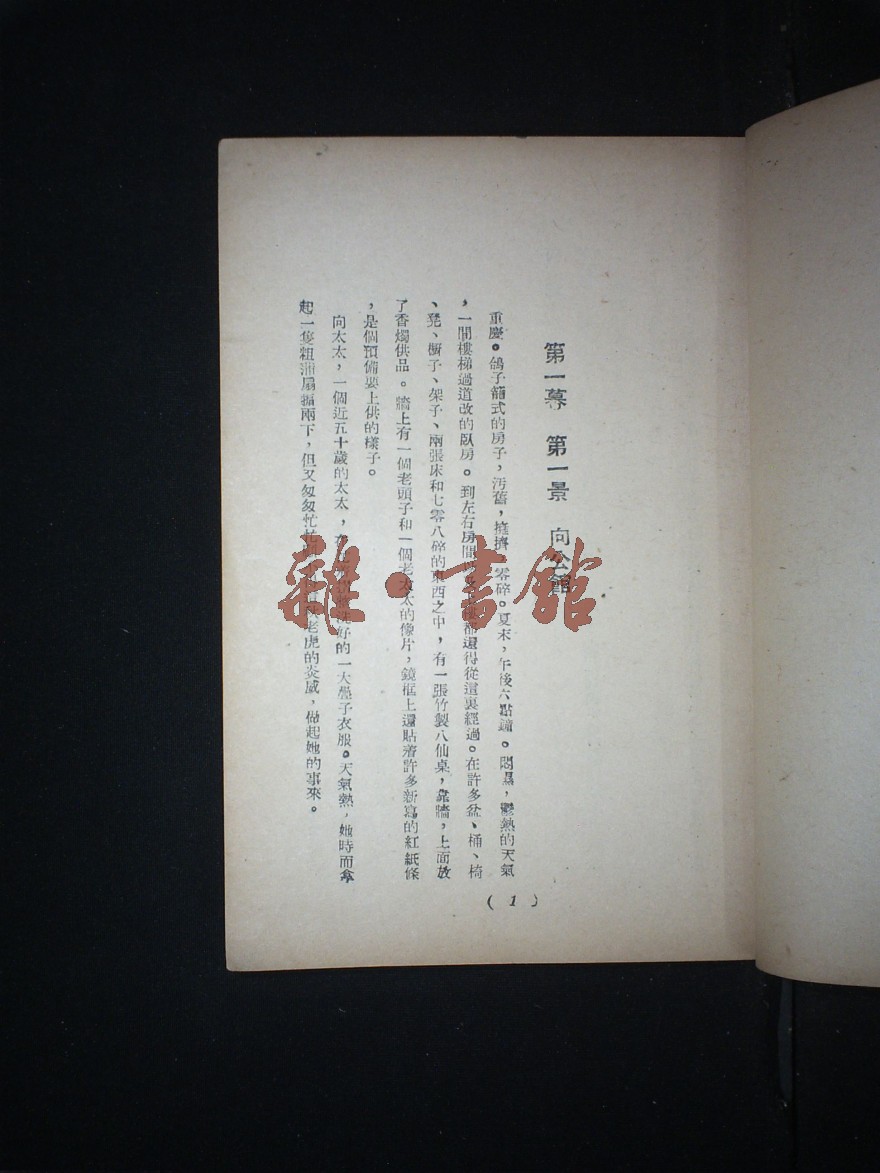 第一幕 第一景 向公館
重慶。鴿子籠式的房子，污舊，擁擠，零碎。夏末，午後六點鐘。悶濕，鬱熱的天氣
，一間樓梯過道改的臥房。到左右房間以及都還得從這裏經過。在許多盆、桶、椅
、凳、櫥子、架子、兩張床和七零八碎的東西之中，有一張竹製八仙桌，靠牆，上面放
了香燭供品。牆上有一個老頭子和一個老太太的像片，鏡框上還貼着許多新寫的紅紙條
，是個預備要上供的樣子。
向太太，一個近五十歲的太太，好的一大疊子衣服。天氣熱，她時而拿
起一隻粗蒲扇搧兩下，但又匆匆忙忙老虎的炎威，做起她的事來。
( 1 )
雜·書館